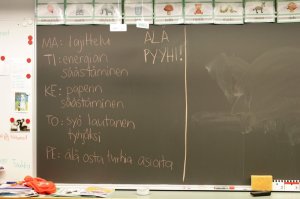 MA: lajittelu
TI: energian
säästäminen
KE: paperin
säästäminen
TO: syö lautanen
tyhjäksi
PE: älä osta turhia asioita
ÄLÄ
PYYHI!